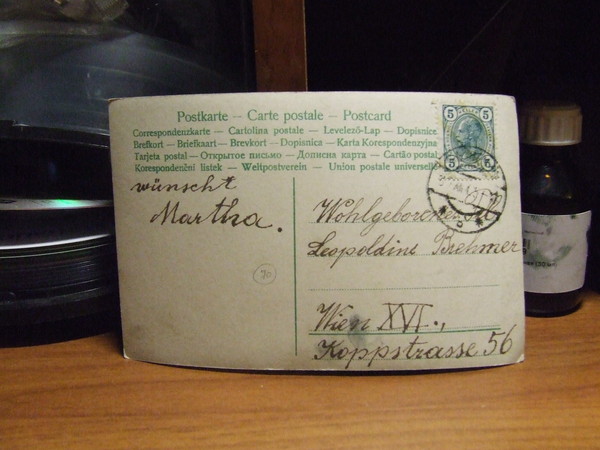 Postkarte – Carte postale – Postcard
Correspondenzkarte – Cartolina postale – Levelező-Lap – Dopisnice
Brefkort – Briefkaart – Brevkort – Dopisnica – Karta Korespondenzyjna
Tarjeta postal – Открытое письмо – Дописна карта – Cartão postal
Korespondenční listek – Weltpostverein – Union postale universelle
5 5
5 5
wünscht
Martha.
70
Wohlgeboren
Leopoldine Brehmer
Wien XVI.,
Koppstrasse 56